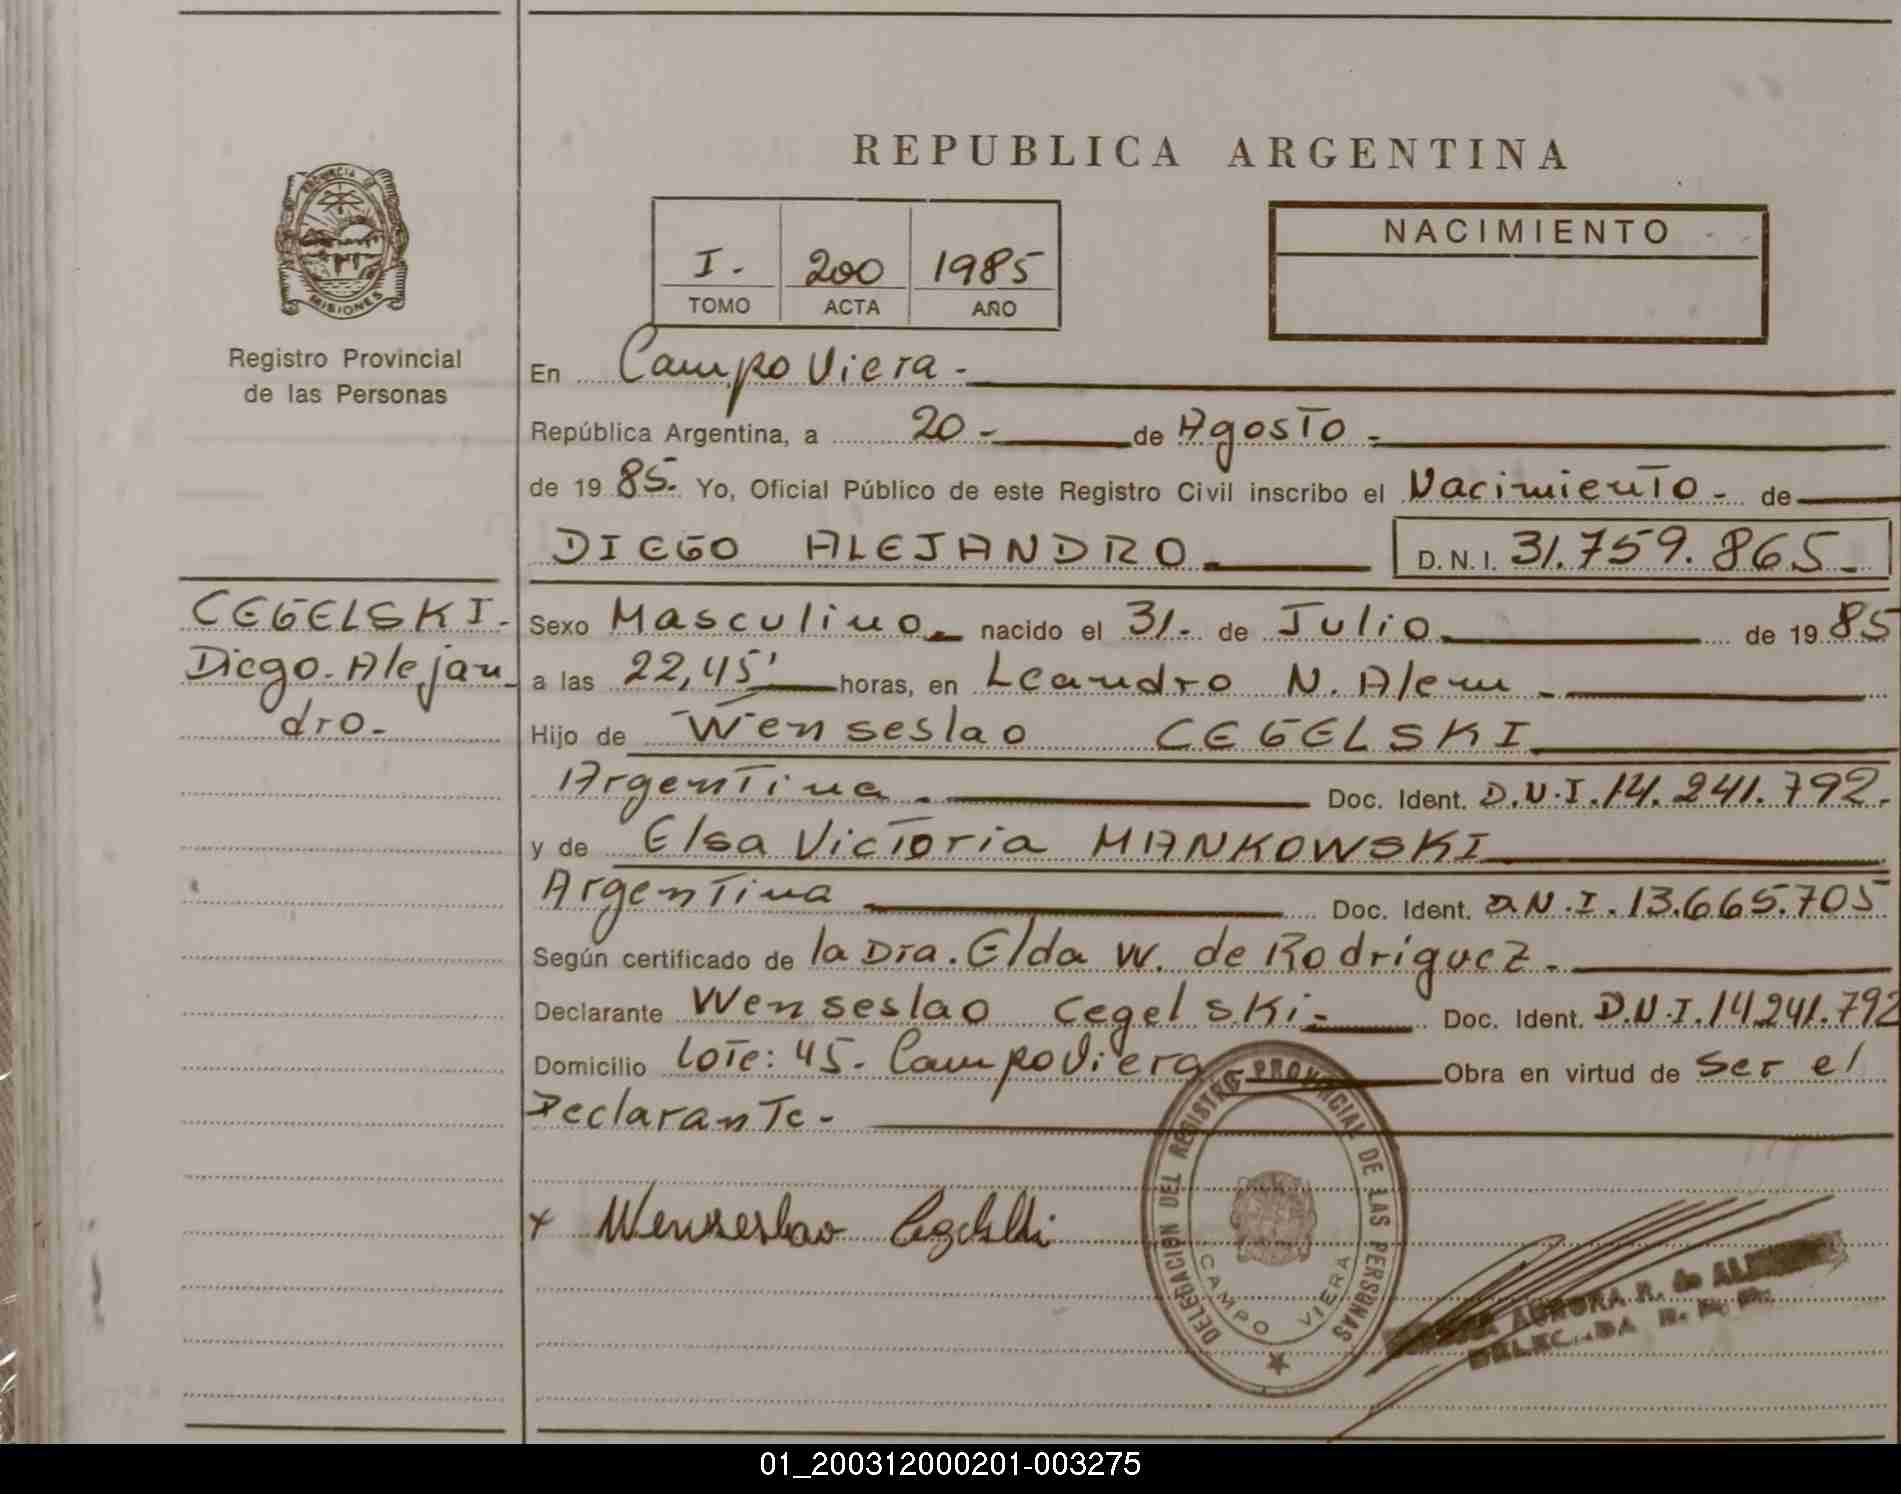 REPUBLICA ARGENTINA
PROVINCIA DE MISIONES
Registro Provincial
de las Personas
I. 200 1985
TOMO ACTA AÑO
NACIMIENTO
En Campo Viera -
República Argentina, a 20 - de Agosto -
de 19 85. Yo, Oficial Público de este Registro Civil inscribo el Nacimiento - de
DIEGO ALEJANDRO D. N. I. 31.759.865.-
CEGELSKI.-
Diego. Alejan
dro.-
Sexo Masculino - nacido el 31. de Julio de 19 85
a las 22,45' horas, en Leandro N. Alem -
Hijo de Wenseslao CEGELSKI
Argentina. Doc. Ident. D.N.I. 14.241.792.
y de Elsa Victoria MANKOWSKI
Argentina Doc. Ident. D.N.I. 13.665.705
Según certificado de la Dra. Elda W. de Rodriguez -
Declarante Wenseslao Cegelski - Doc. Ident. D.N.I. 14.241.792
Domicilio Lote: 45. Campo Viera Obra en virtud de ser el
Declarante -
x Wenseslao Cegelski
DELEGACION DEL REGISTRO PROVINCIAL DE LAS PERSONAS
CAMPO VIERA
AURORA R. de
01_200312000201-003275